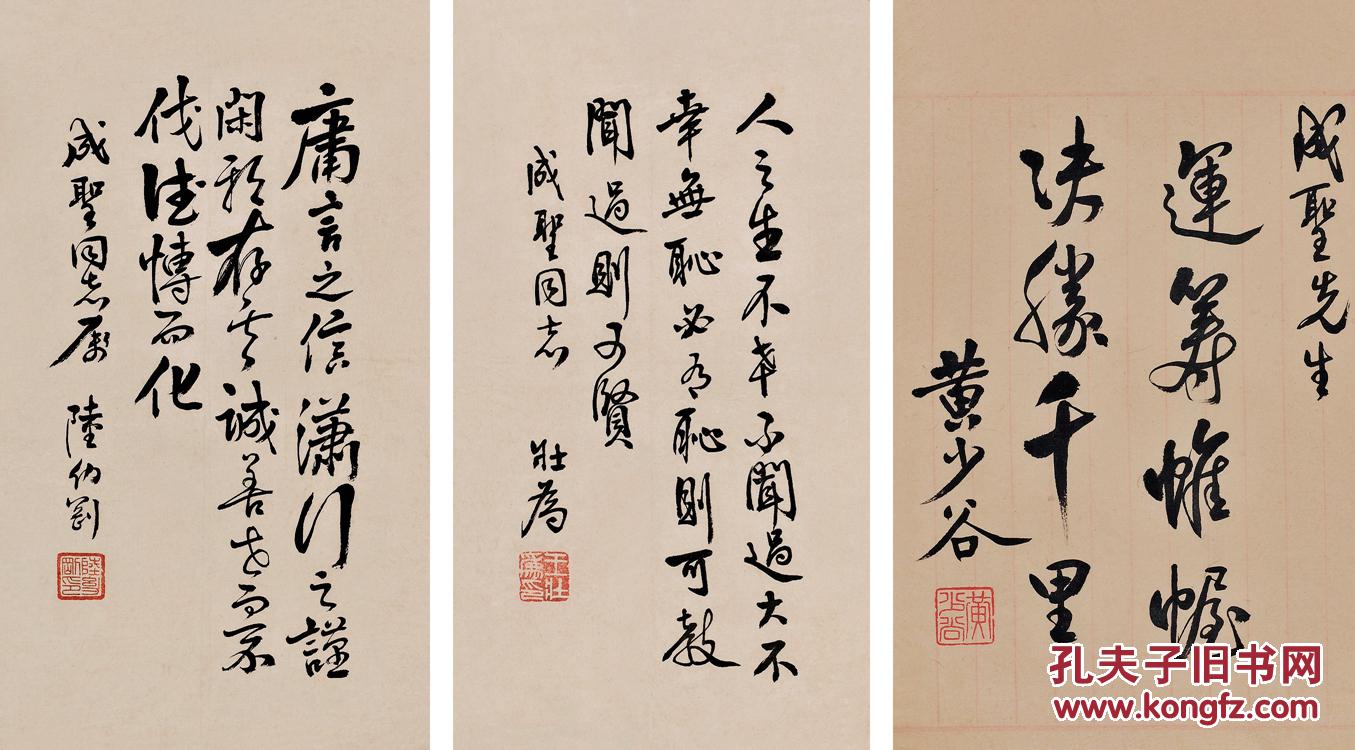 庸言之信瀟行之謹
閑邪存其誠善世而不
伐德愽而化
成聖同志屬 陸幼剛
人之生不幸不聞過大不
幸無恥必有恥則可教
聞過則可賢
成聖同志 壯為
王壯為印
成聖先生
運籌帷幄
決勝千里
黃少谷
黃少谷
孔夫子旧书网
www.kongfz.com